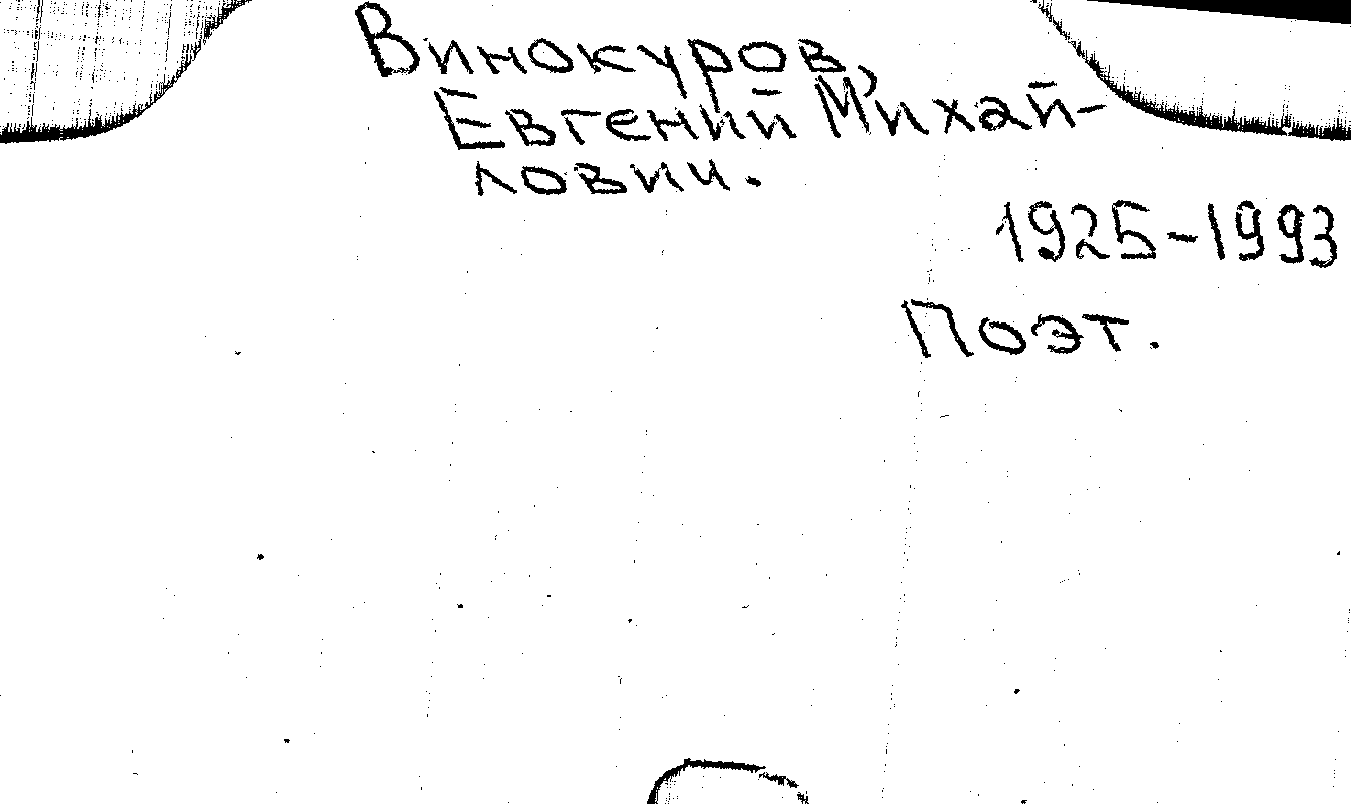 Винокуров,
Евгений Михай-
лович.
1925-1993
Поэт.